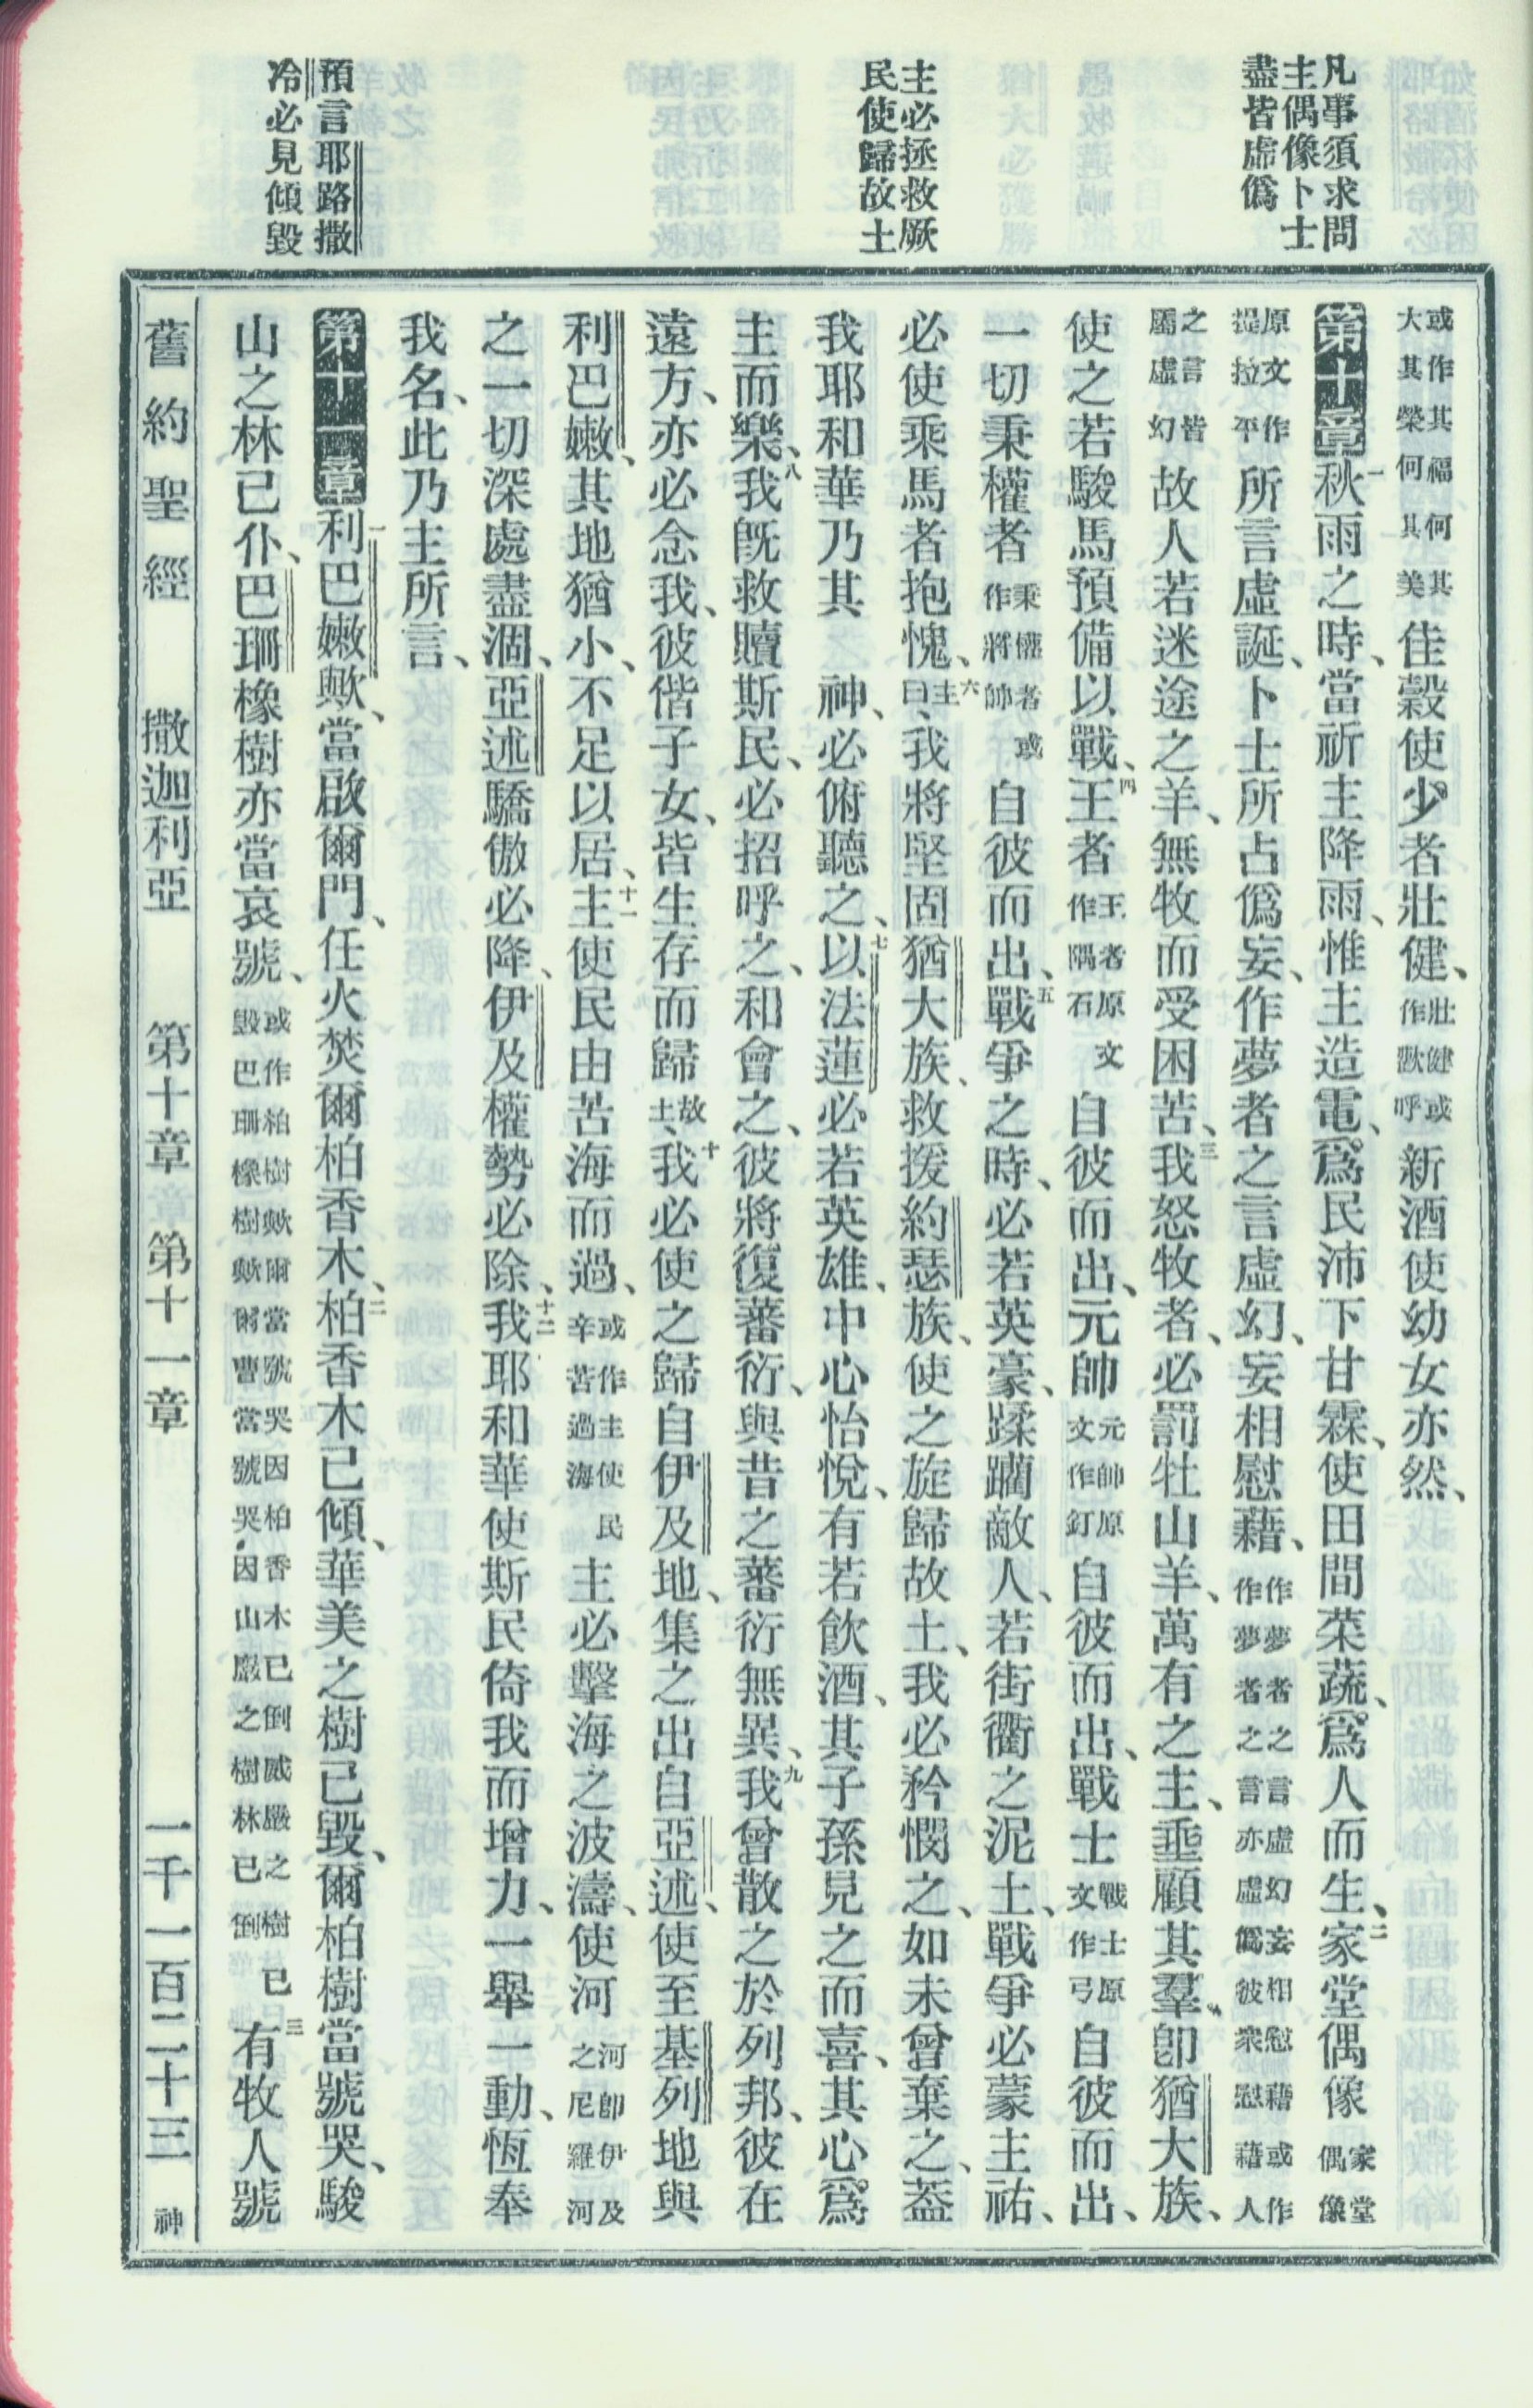 凡事須求問
主偶像卜士
盡皆虛僞
主必拯救厥
民使歸故土
預言耶路撒
冷必見傾毀
或作其福何其大其榮何其美佳穀使少者壯健、壯健或作歡呼新酒使幼女亦然、
第十章一秋雨之時、當祈主降雨、惟主造電、爲民沛下甘霖、使田間菜蔬、爲人而生、二家堂偶像家堂偶像
原文作提拉平所言虛誕、卜士所占僞妄、作夢者之言虛幻、妄相慰藉、作夢者之言虛幻妄相慰藉或作作夢者之言亦虛僞彼衆慰藉人
之言皆屬虛幻故人若迷途之羊、無牧而受困苦、三我怒牧者、必罰牡山羊、萬有之主、垂顧其羣、卽猶大族、
使之若駿馬預備以戰、四王者王者原文作隅石自彼而出、元帥元帥原文作釘自彼而出、戰士戰士原文作弓自彼而出、
一切秉權者秉權者或作將帥自彼而出、五戰爭之時、必若英豪、蹂躪敵人、若街衢之泥土、戰爭必蒙主祐、
必使乘馬者抱愧、六主曰、我將堅固猶大族、救援約瑟族、使之旋歸故土、我必矜憫之、如未曾棄之、蓋
我耶和華乃其神、必俯聽之、七以法蓮必若英雄、中心怡悅、有若飮酒、其子孫見之而喜、其心爲
主而樂、八我旣救贖斯民、必招呼之、和會之、彼將復蕃衍、與昔之蕃衍無異、九我曾散之於列邦、彼在
遠方、亦必念我、彼偕子女、皆生存而歸故土、十我必使之歸自伊及地、集之出自亞述、使至基列地與
利巴嫩、其地猶小、不足以居、十一主使民由苦海而過、或作主使民辛苦過海主必擊海之波濤、使河河卽伊及之尼羅河
之一切深處盡涸、亞述驕傲必降、伊及權勢必除、十二我耶和華使斯民倚我而增力、一舉一動、恆奉
我名、此乃主所言、
第十一章一利巴嫩歟、當啟爾門、任火焚爾柏香木、二柏香木已傾、華美之樹已毀、爾柏樹當號哭、駿
山之林已仆、巴珊橡樹亦當哀號、或作柏樹歟爾當號哭因柏香木已倒威嚴之樹已毀巴珊橡樹歟爾曹當號哭因山巖之樹林已倒三有牧人號
舊約聖經 撒迦利亞 第十章 第十一章 一千一百二十三 神